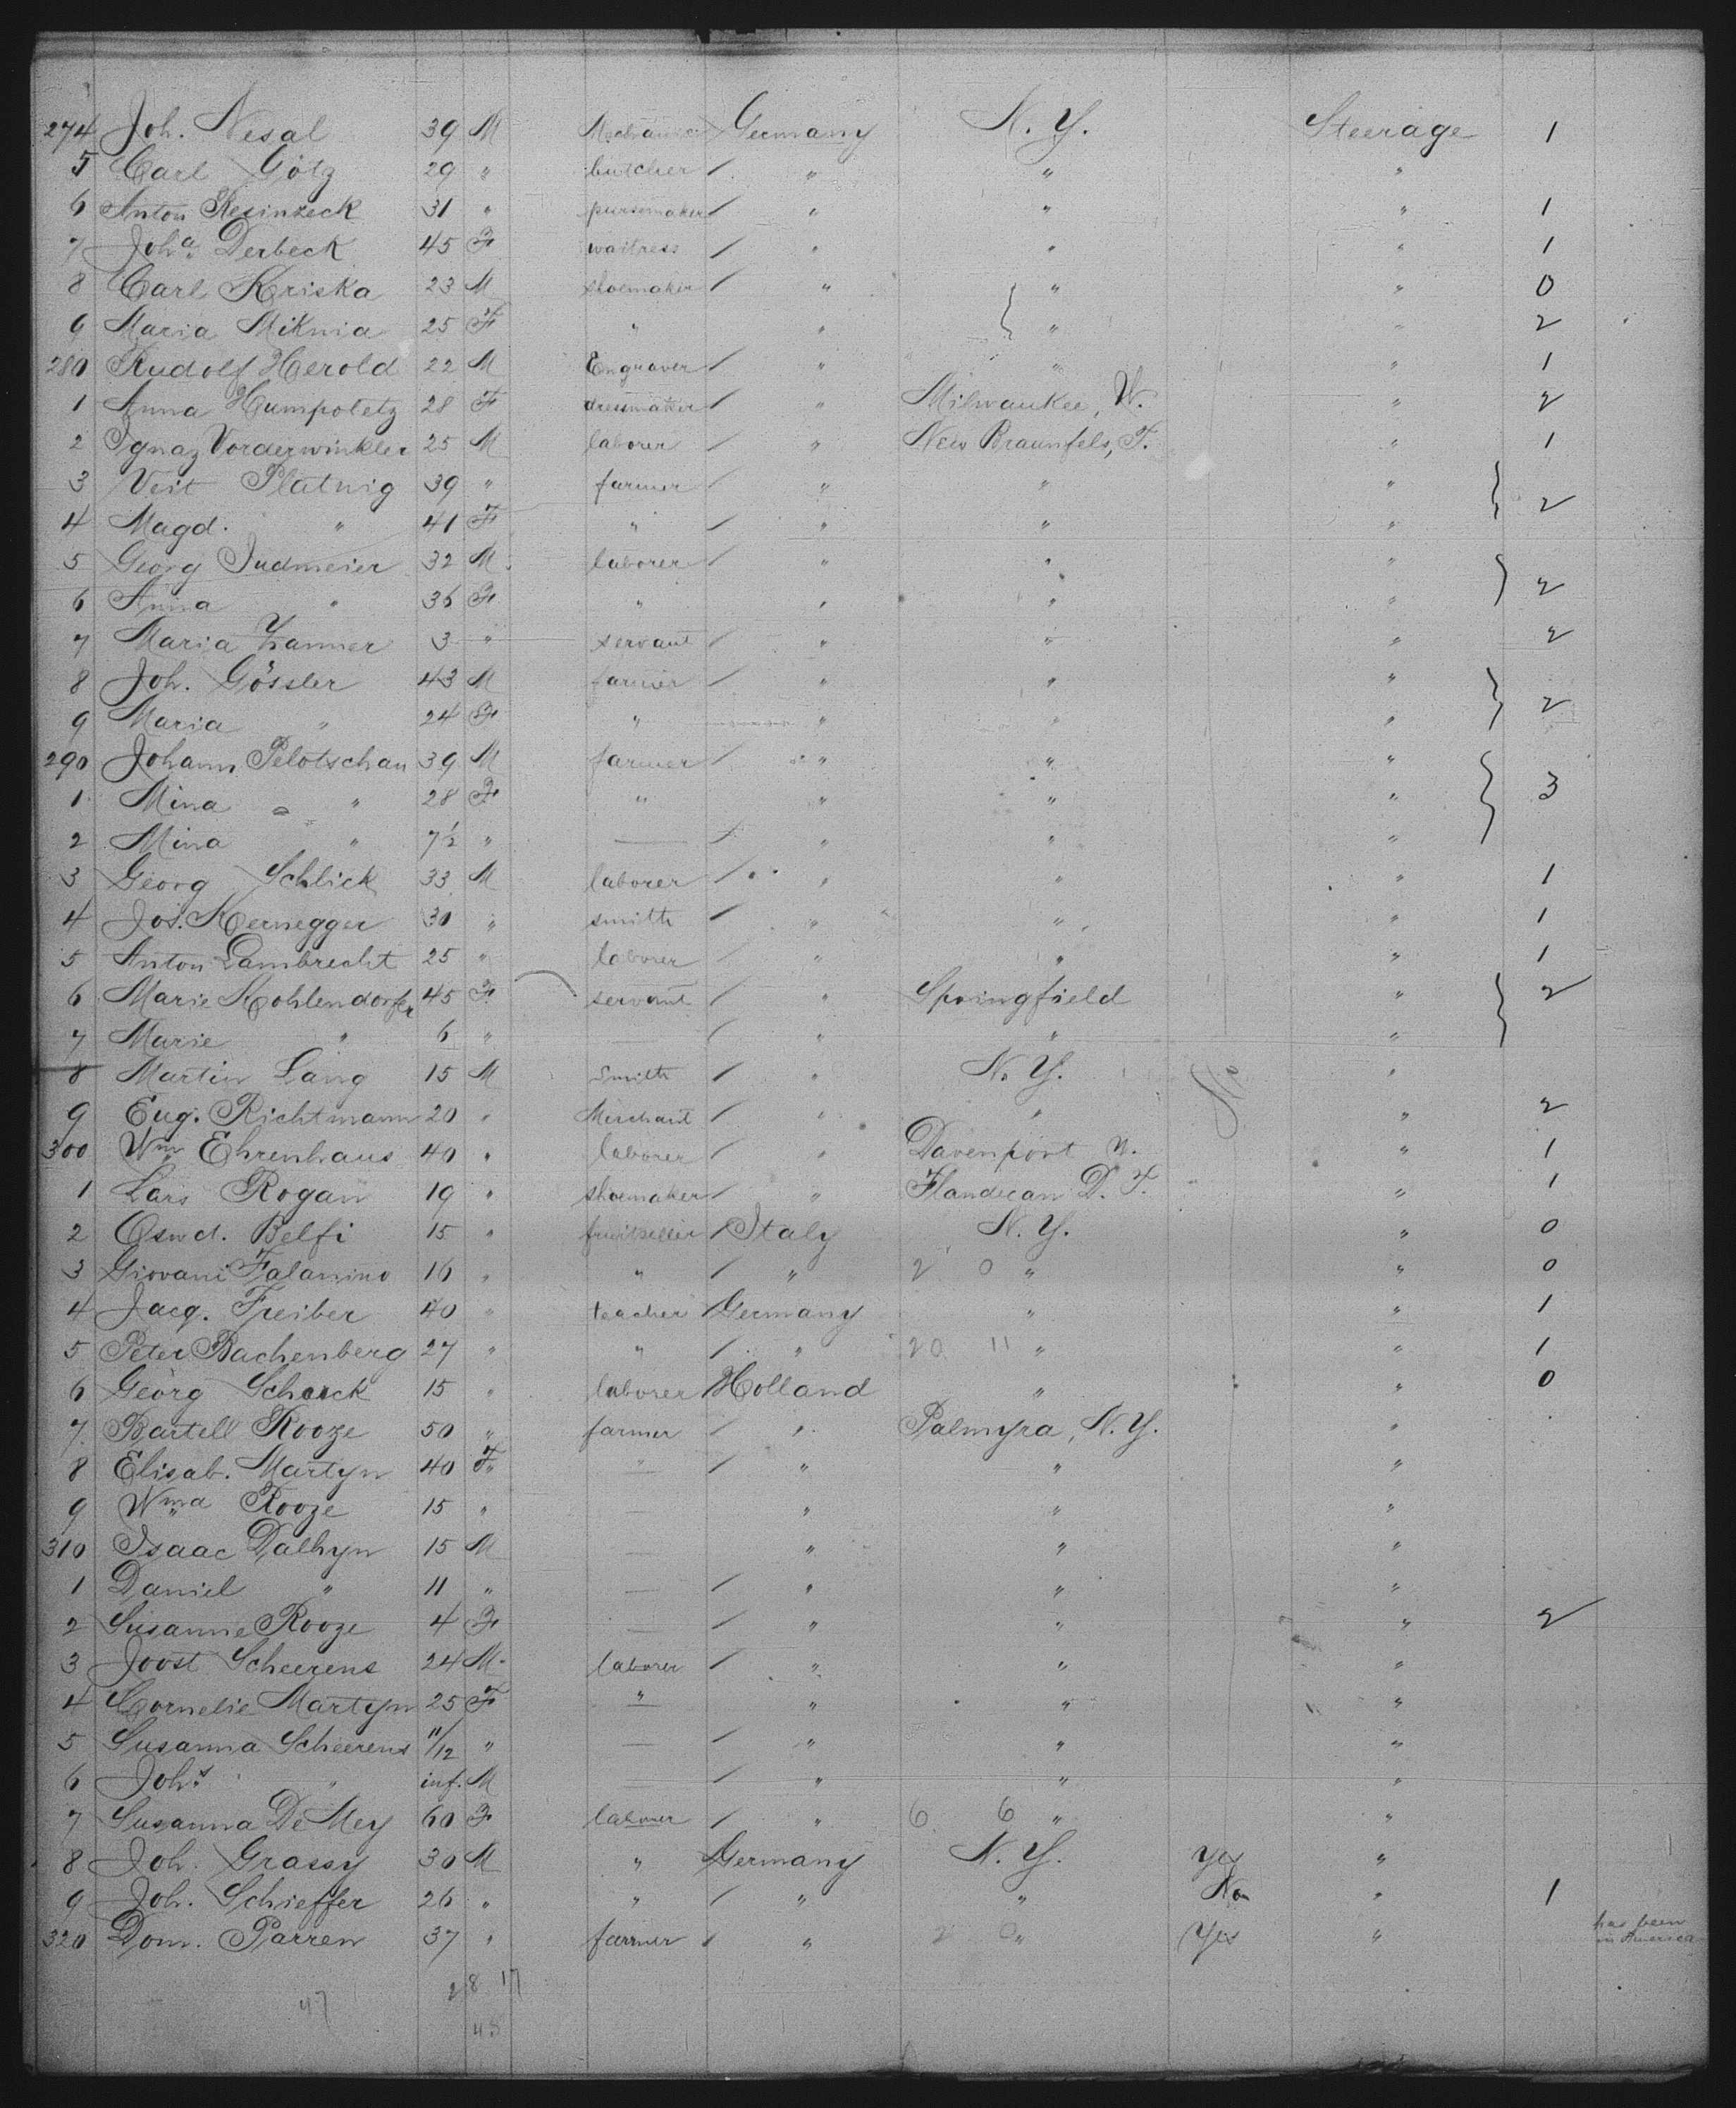 274 Joh. Nesal 39 M Mechanic Germany N. Y. Steerage 1
5 Carl Götz 29 " butcher / " " "
6 Anton Resinzeck 31 " pursemaker / " " " 1
7 Joh.a Derbeck 45 F waitress / " " " 1
8 Carl Kriska 23 M shoemaker / " " " 0
9 Maria Miknia 25 F " " " " 2
280 Rudolf Herold 22 M Engraver / " " " 1
1 Anna Humpoletz 28 F dressmaker / " Milwaukee, W. " 2
2 Ignaz Vorderwinkler 25 M laborer / " New Braunfels, T. " 1
3 Veit Platnig 39 " farmer / " " "
4 Magd. " 41 F " / " " " 2
5 Georg Judmeier 32 M laborer / " " "
6 Anna " 36 F " " " " 2
7 Maria Zanner 3 " servant / " " " 2
8 Joh. Gössler 43 M farmer / " " "
9 Maria " 24 F " " " " 2
290 Johann Pelotschan 39 M farmer / " " "
1 Mina " 28 F " " " " 3
2 Mina " 7½ " — / " " "
3 Georg Schlick 33 M laborer / " " " 1
4 Jos. Kernegger 30 " smith / " " " 1
5 Anton Lambrecht 25 " laborer / " " " 1
6 Marie Kohlendorfer 45 F servant / " Springfield " 2
7 Marie " 6 " / " " "
8 Martin Lang 15 M Smith / " N. Y. "
9 Eug. Richtmann 20 " Merchant / " " " 2
300 Wm Ehrenhaus 40 " laborer / " Davenport " 1
1 Lars Rogan 19 " shoemaker / " Flandreau D. T. " 1
2 Oswd. Belfi 15 " fruitseller / Italy N. Y. " 0
3 Giovani Falanino 16 " " / " 2 0 " " 0
4 Jacq. Freiber 40 " teacher / Germany " " 1
5 Peter Bachenberg 27 " " / " 20 11 " " 1
6 Georg Schack 15 " laborer / Holland " " 0
7 Bartell Rooze 50 " farmer / " Palmyra, N. Y. "
8 Elisab. Martyn 40 F " / " " "
9 Wma Rooze 15 " — " " "
310 Isaac Dalhyn 15 M — " " "
1 Daniel " 11 " — / " " "
2 Susanne Rooze 4 F — / " " " 2
3 Joost Scheerens 24 M laborer / " " "
4 Cornelie Martyn 25 F " " " "
5 Susanna Scheerens 11/12 " — / " " "
6 Joh.s " inf. M — / " " "
7 Susanna De Mey 60 F laborer / " 6 6 " "
8 Joh. Grassy 30 M " Germany N. Y. Yes "
9 Joh. Schieffer 26 " " / " " No " 1
320 Dom. Parren 37 " farmer / " 2 0 " Yes " has been in America
47 28 17